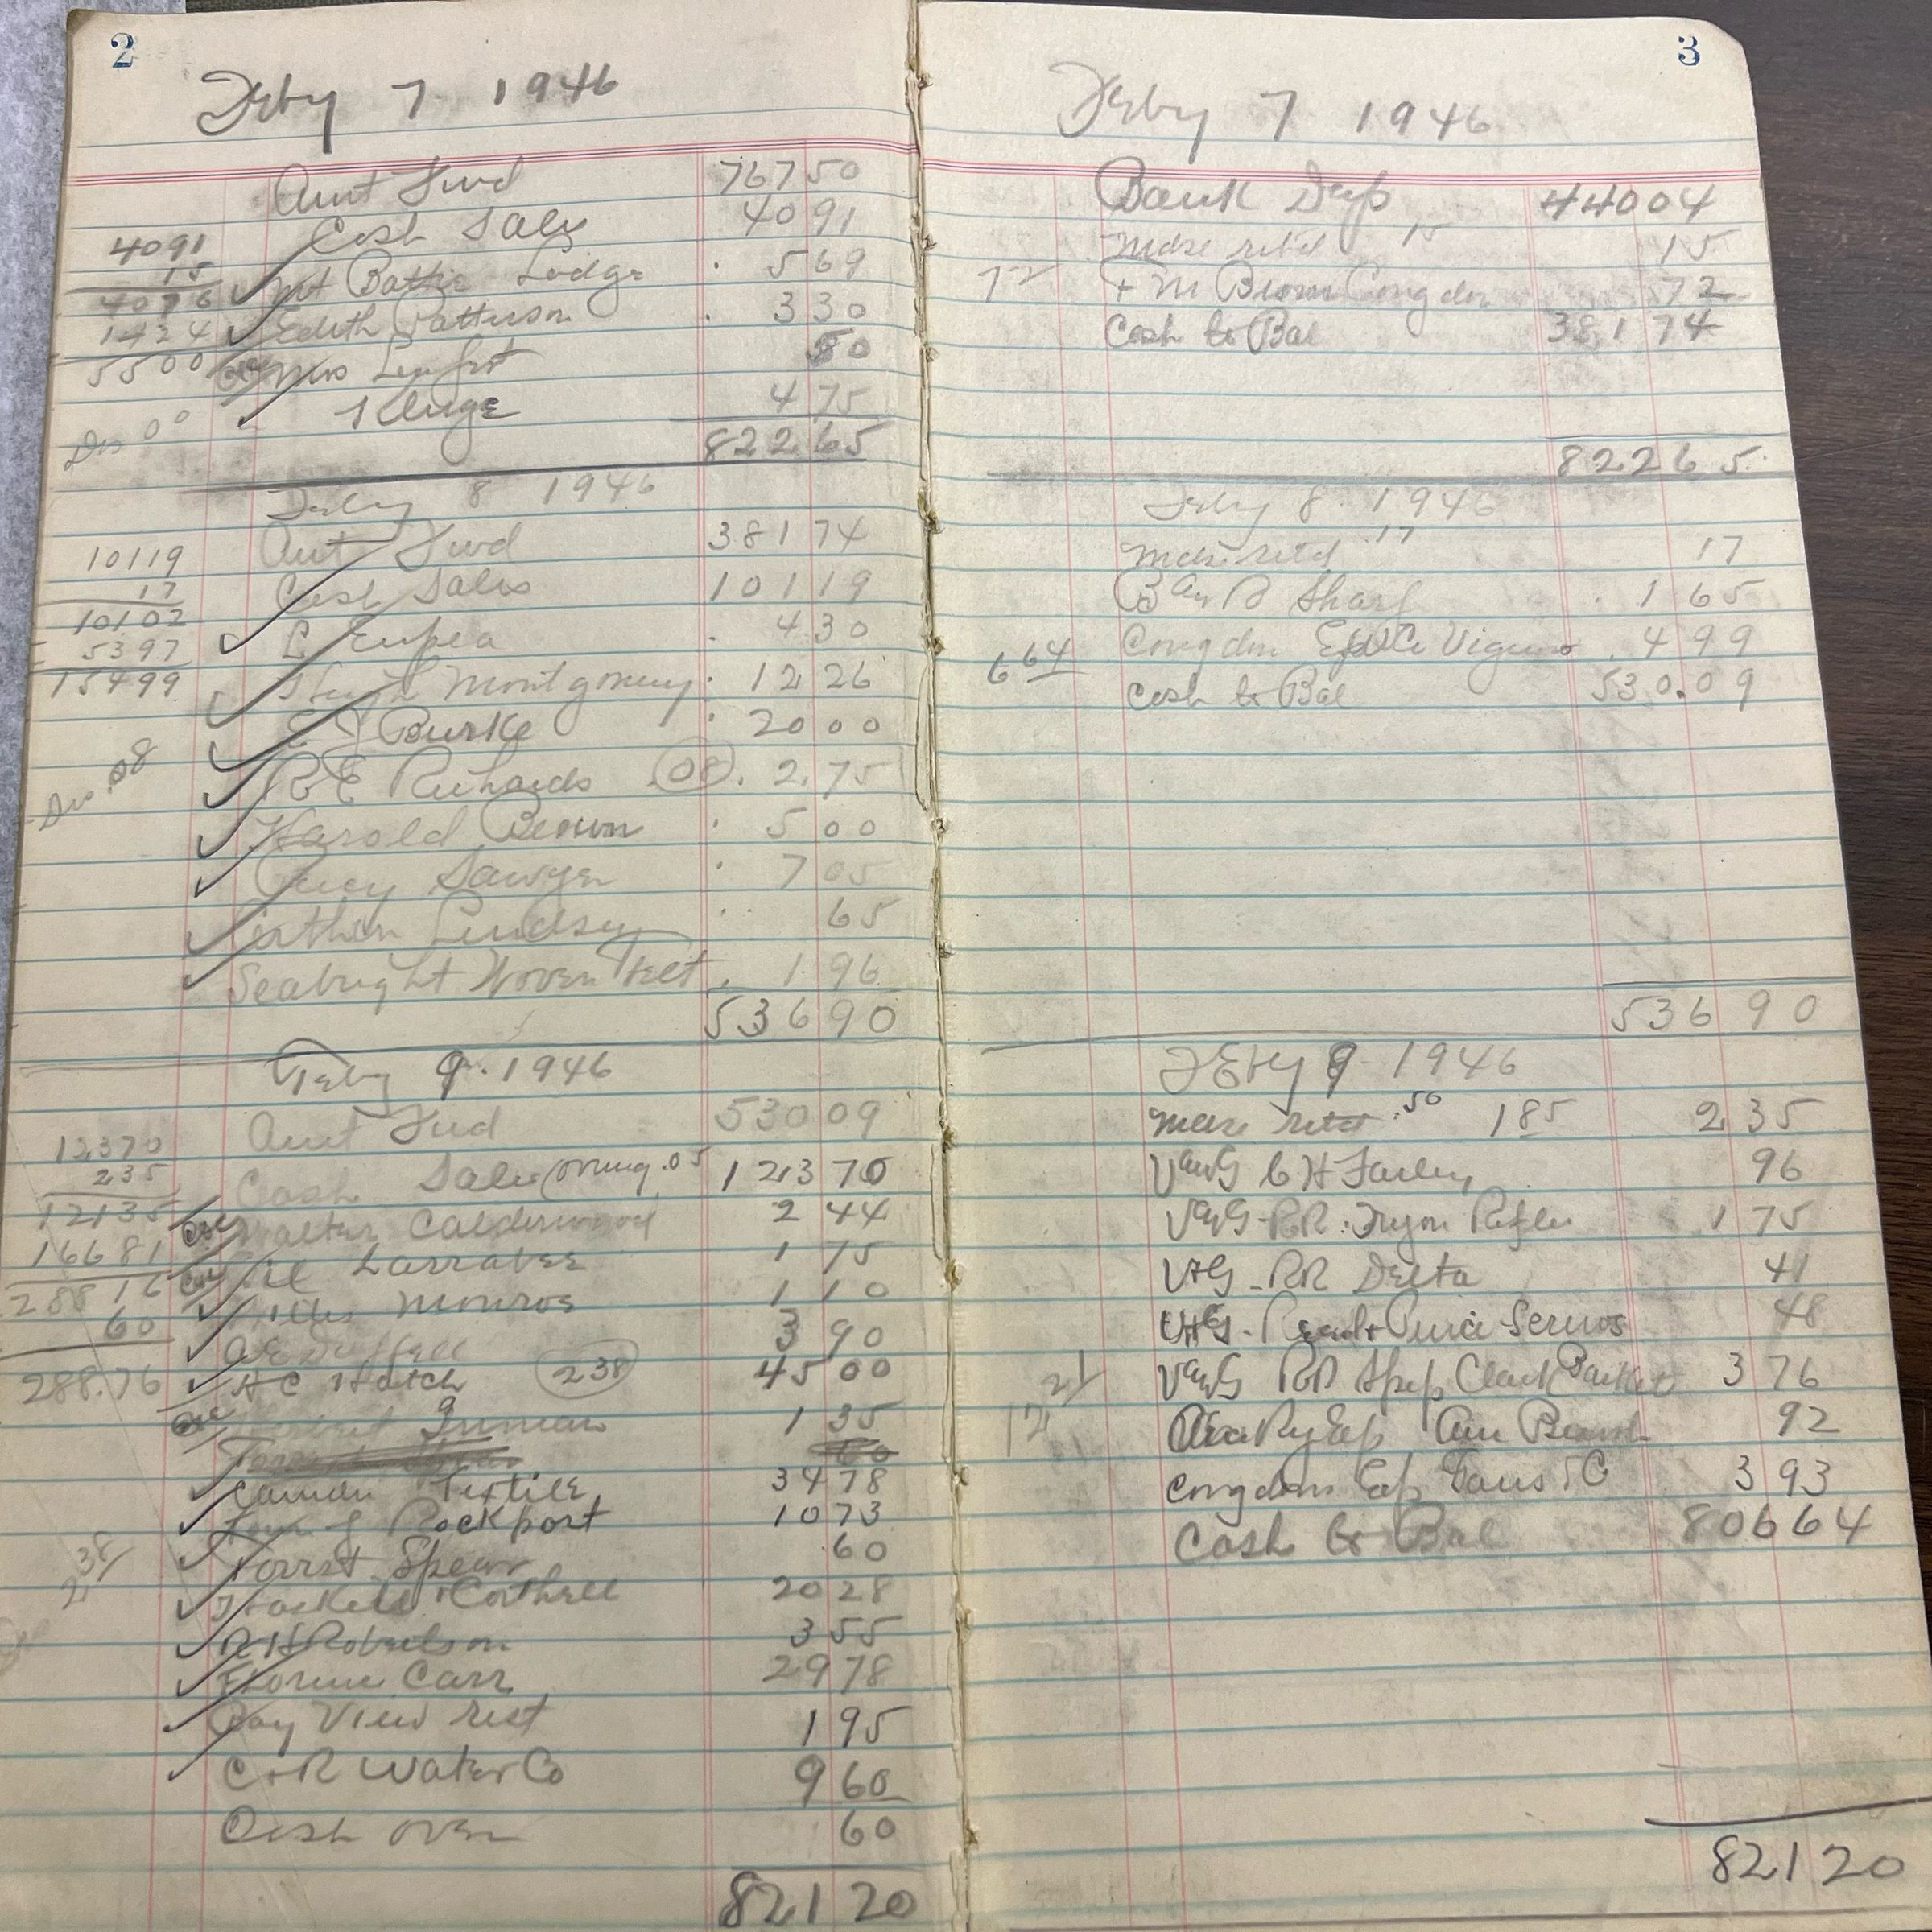 2
Feby 7 1946
Amt Fwd 767 50
Cash Sales 40 91
4091
15
4076
1424
5500
Mt Battie Lodge . 5 69
Edith Patterson . 3 30
Mrs 80
Kluge 4 75
Dis 00
822 65
Feby 8 1946
Amt Fwd 381 74
Cash Sales 101 19
10119
17
10102
5397
15499
L Eupea . 4 30
Hugh Montgomery . 12 26
E J Burke . 20 00
R E Richards (08) . 2.75
Dis .08
Harold Brown . 5 00
Percy Sawyer . 7 05
Lindsey . 65
Seabright Woven Felt . 1 96
536 90
Feby 9 . 1946
Amt Fwd 530 09
Cash Sales 05 123 70
12370
235
12135
16681
28816
60
288.76
Walter Calderwood 2 44
Al Larrabee 1 75
Allie Monroe 1 10
3 90
H C Hatch (238) 45 00
Inman 1 35
60
Camden Textile 34 78
Town of Rockport 10 73
Forrst Spear .60
2 38/
Haskell & Corthell 20 28
R H Robertson 3 55
Florence Carr 29 78
Bay View rest 1 95
C & R Water Co 9 60
Cash over 60
821 20
3
Feby 7 1946
Bank Dep 440 04
Mdse retd 15 15
72 + M Brown Congdon 72
Cash to Bal 381 74
822 65
Feby 8 . 1946
Mdse retd .17 17
Sharp . 1 65
6 64 Congdon . 4 99
Cash to Bal 530.09
536 90
Feby 9 1946
Mdse retd .50 185 2 35
V and G C H Farley 96
V and G - RR . Tryon 1 75
V+G - RR Delta 41
V+G - 48
21/ V and G RR Clark 3 76
92
Congdon Exp 3 93
Cash to Bal 806 64
821 20